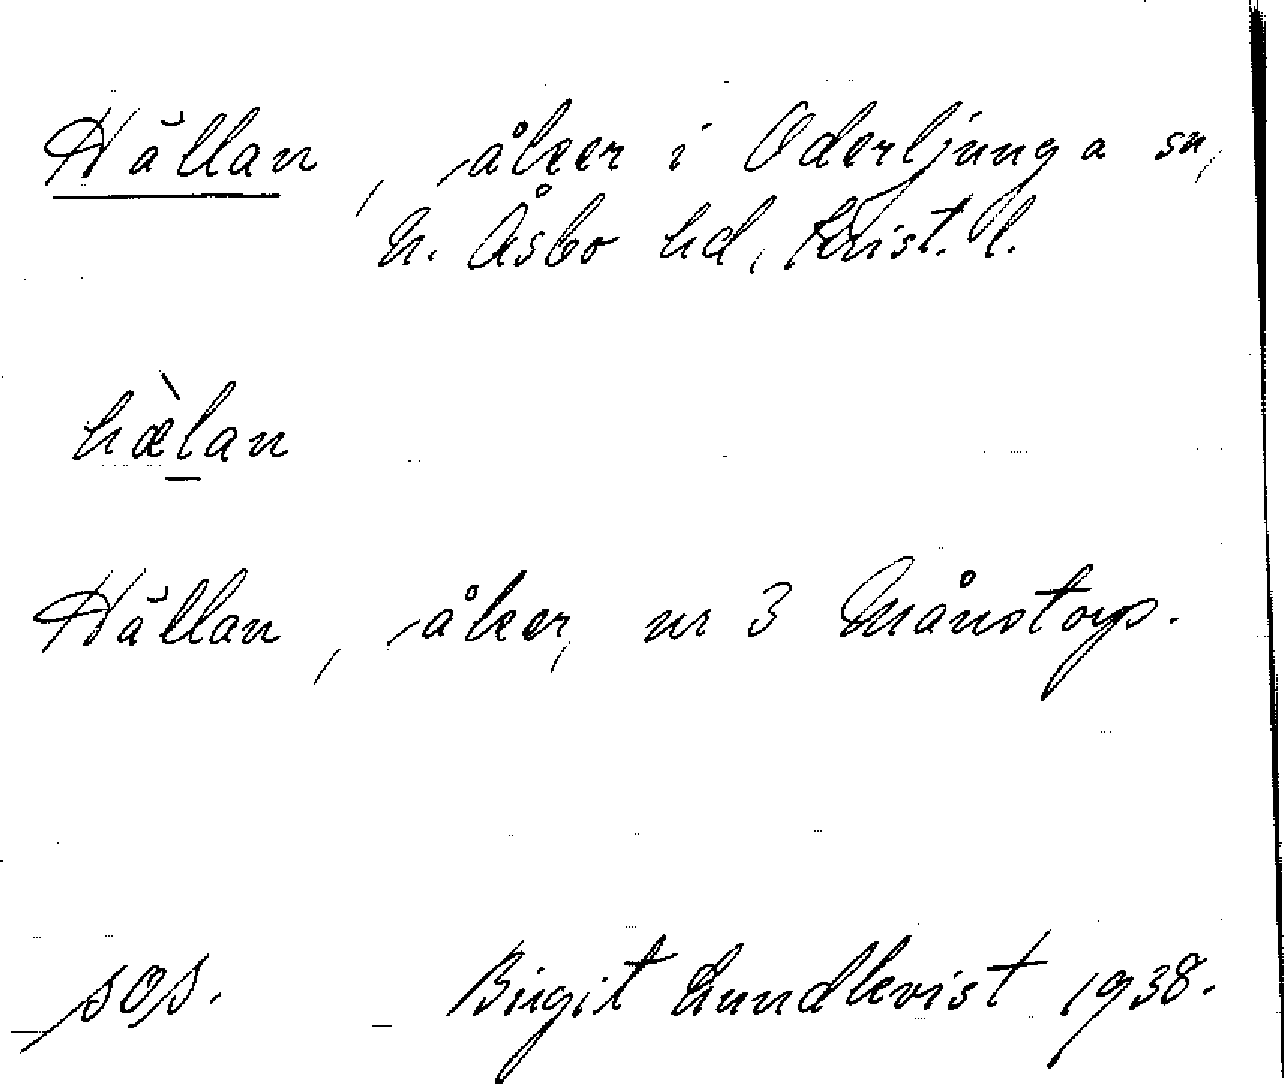 Hällan, åker i Oderljunga sn,
N. Åsbo hd, Krist. l.
hæ̀lan
Hällan, åker, nr 3 Månstorp.
SOS. Birgit Lundkvist 1938.